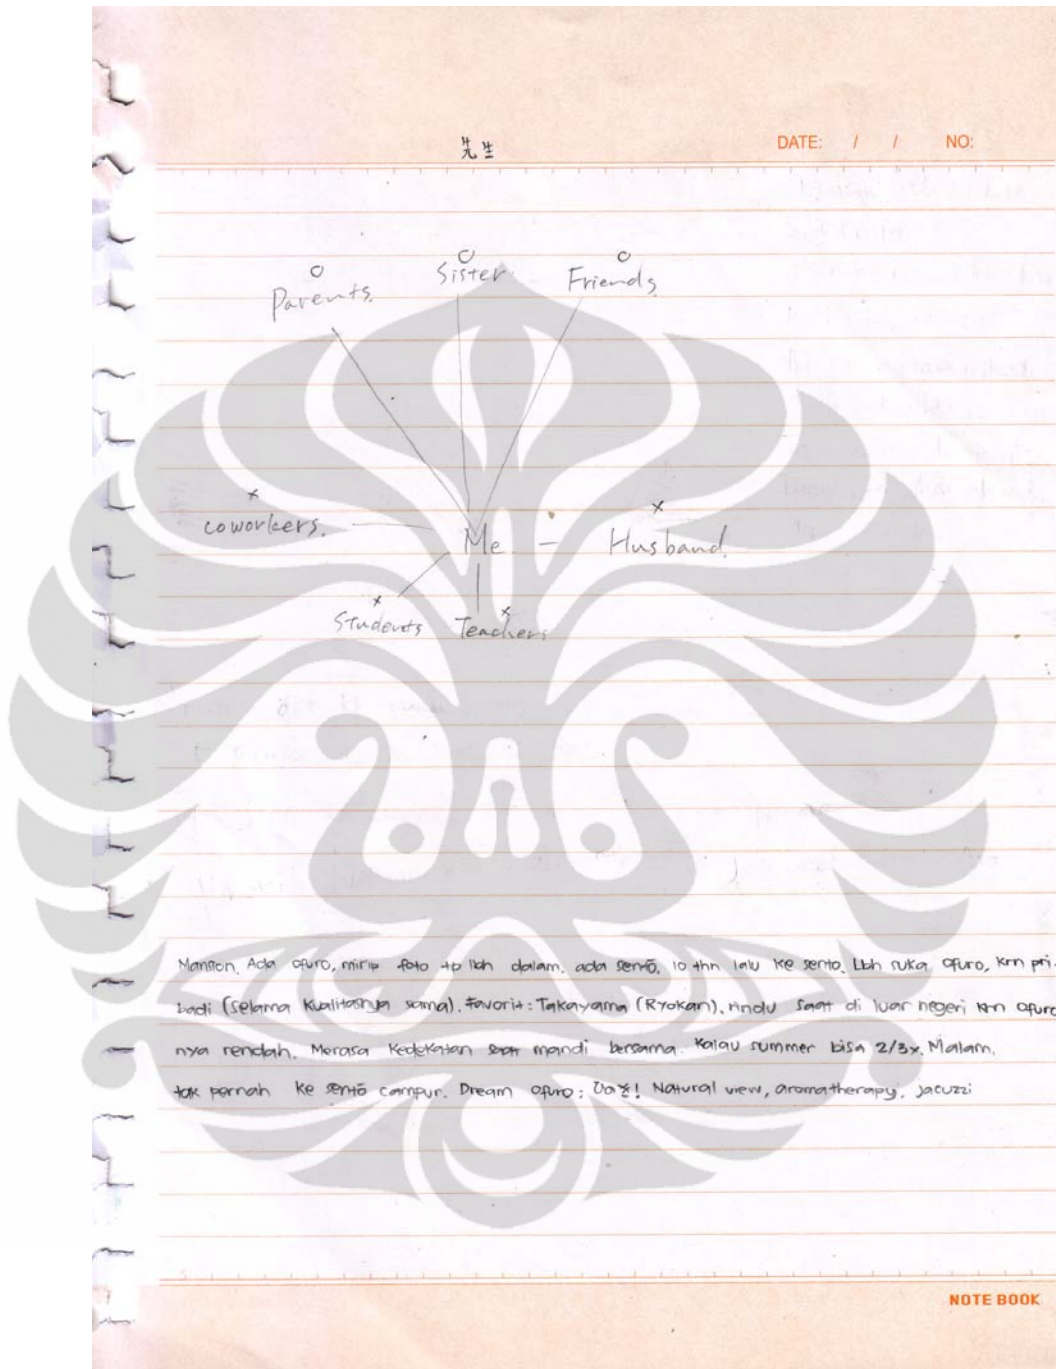 先生
DATE: / / NO:
O O O
Parents. Sister Friends.
x x
coworkers. Me - Husband.
x x
Students Teachers
Mansion. Ada ofuro, mirip foto tp lbh dalam. ada sentō. 10 thn lalu ke sento. Lbh suka ofuro, krn pri-
badi (selama kualitasnya sama). Favorit: Takayama (Ryokan). rindu saat di luar negeri krn ofuro
nya rendah. Merasa kedekatan saat mandi bersama. Kalau summer bisa 2/3x. Malam.
tak pernah ke sentō campur. Dream ofuro: Natural view, aromatherapy, jacuzzi
NOTE BOOK